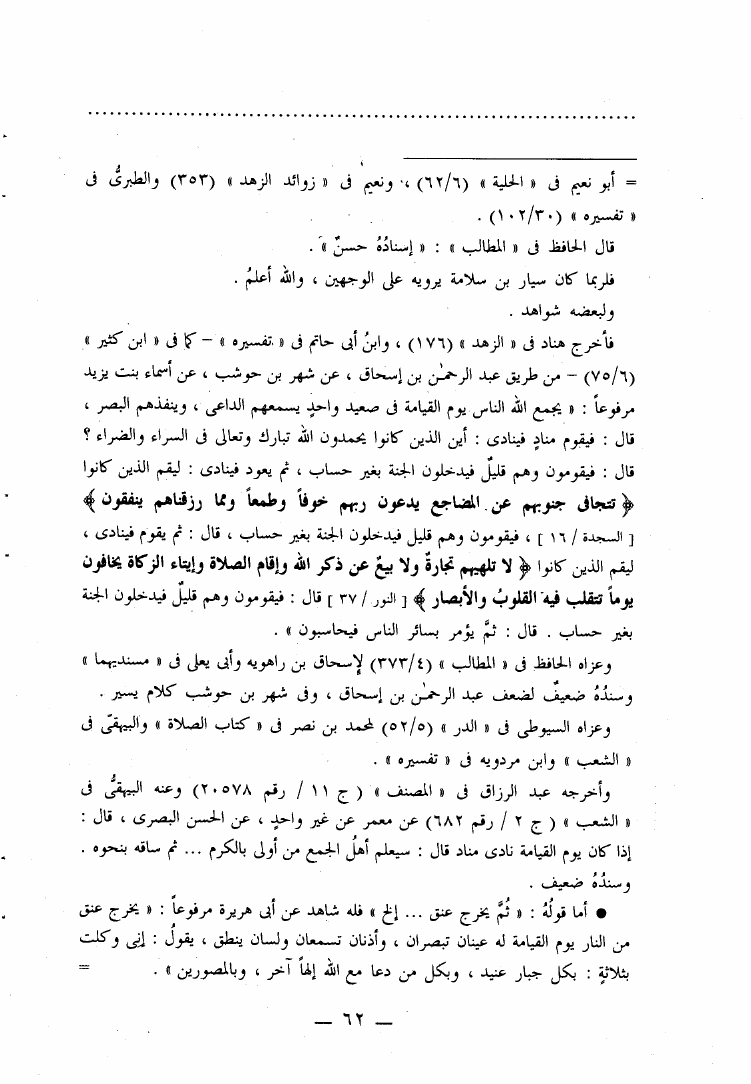 = أبو نعيم فى « الحلية » (٦٢/٦) ، ونعيم فى « زوائد الزهد » (٣٥٣) والطبرىُّ فى
« تفسيره » (١٠٢/٣٠) .
قال الحافظ فى « المطالب » : « إسنادُهُ حسنٌ » .
فلربما كان سيار بن سلامة يرويه على الوجهين ، والله أعلمُ .
ولبعضه شواهد .
فأخرج هناد فى « الزهد » (١٧٦) ، وابنُ أبى حاتم فى « تفسيره » – كما فى « ابن كثير »
(٧٥/٦) – من طريق عبد الرحمٰن بن إسحاق ، عن شهر بن حوشب ، عن أسماء بنت يزيد
مرفوعاً : « يجمع الله الناس يوم القيامة فى صعيد واحدٍ يسمعهم الداعى ، وينفذهم البصر ،
قال : فيقوم منادٍ فينادى : أين الذين كانوا يحمدون الله تبارك وتعالى فى السراء والضراء ؟
قال : فيقومون وهم قليلٌ فيدخلون الجنة بغير حساب ، ثم يعود فينادى : ليقم الذين كانوا
﴿ تتجافى جنوبهم عن المضاجع يدعون ربهم خوفاً وطمعاً ومما رزقناهم ينفقون ﴾
[ السجدة / ١٦ ] ، فيقومون وهم قليل فيدخلون الجنة بغير حساب ، قال : ثم يقوم فينادى ،
ليقم الذين كانوا ﴿ لا تلهيهم تجارةٌ ولا بيعٌ عن ذكر الله وإقام الصلاة وإيتاء الزكاة يخافون
يوماً تتقلب فيه القلوبُ والأبصار ﴾ [ النور / ٣٧ ] قال : فيقومون وهم قليلٌ فيدخلون الجنة
بغير حساب . قال : ثمَّ يؤمر بسائر الناس فيحاسبون » .
وعزاه الحافظ فى « المطالب » (٣٧٣/٤) لإسحاق بن راهويه وأبى يعلى فى « مسنديهما »
وسندُهُ ضعيفٌ لضعف عبد الرحمٰن بن إسحاق ، وفى شهر بن حوشب كلام يسير .
وعزاه السيوطى فى « الدر » (٥٢/٥) لمحمد بن نصر فى « كتاب الصلاة » والبيهقىّ فى
« الشعب » وابن مردويه فى « تفسيره » .
وأخرجه عبد الرزاق فى « المصنف » ( ج ١١ / رقم ٢٠٥٧٨) وعنه البيهقىُّ فى
« الشعب » ( ج ٢ / رقم ٦٨٢) عن معمر عن غير واحدٍ ، عن الحسن البصرى ، قال :
إذا كان يوم القيامة نادى مناد قال : سيعلم أهلُ الجمع من أولى بالكرم ... ثم ساقه بنحوه .
وسندُهُ ضعيف .
● أما قولُهُ : « ثُمَّ يخرج عنق ... إلخ » فله شاهد عن أبى هريرة مرفوعاً : « يخرج عنق
من النار يوم القيامة له عينان تبصران ، وأذنان تسمعان ولسان ينطق ، يقولُ : إنى وكلت
بثلاثةٍ : بكل جبار عنيد ، وبكل من دعا مع الله إلهاً آخر ، وبالمصورين » . =
— ٦٢ —